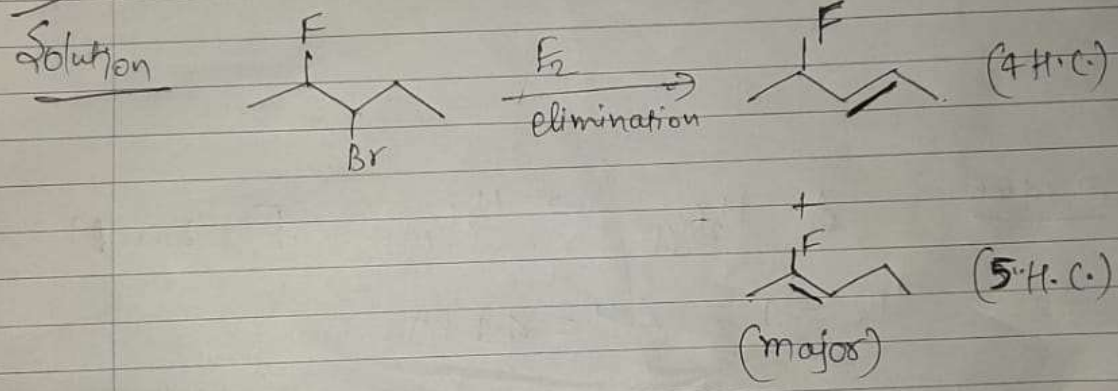 Solution
F
Br
E2
elimination
F
(4 H.C.)
+
F
(5 H.C.)
(major)